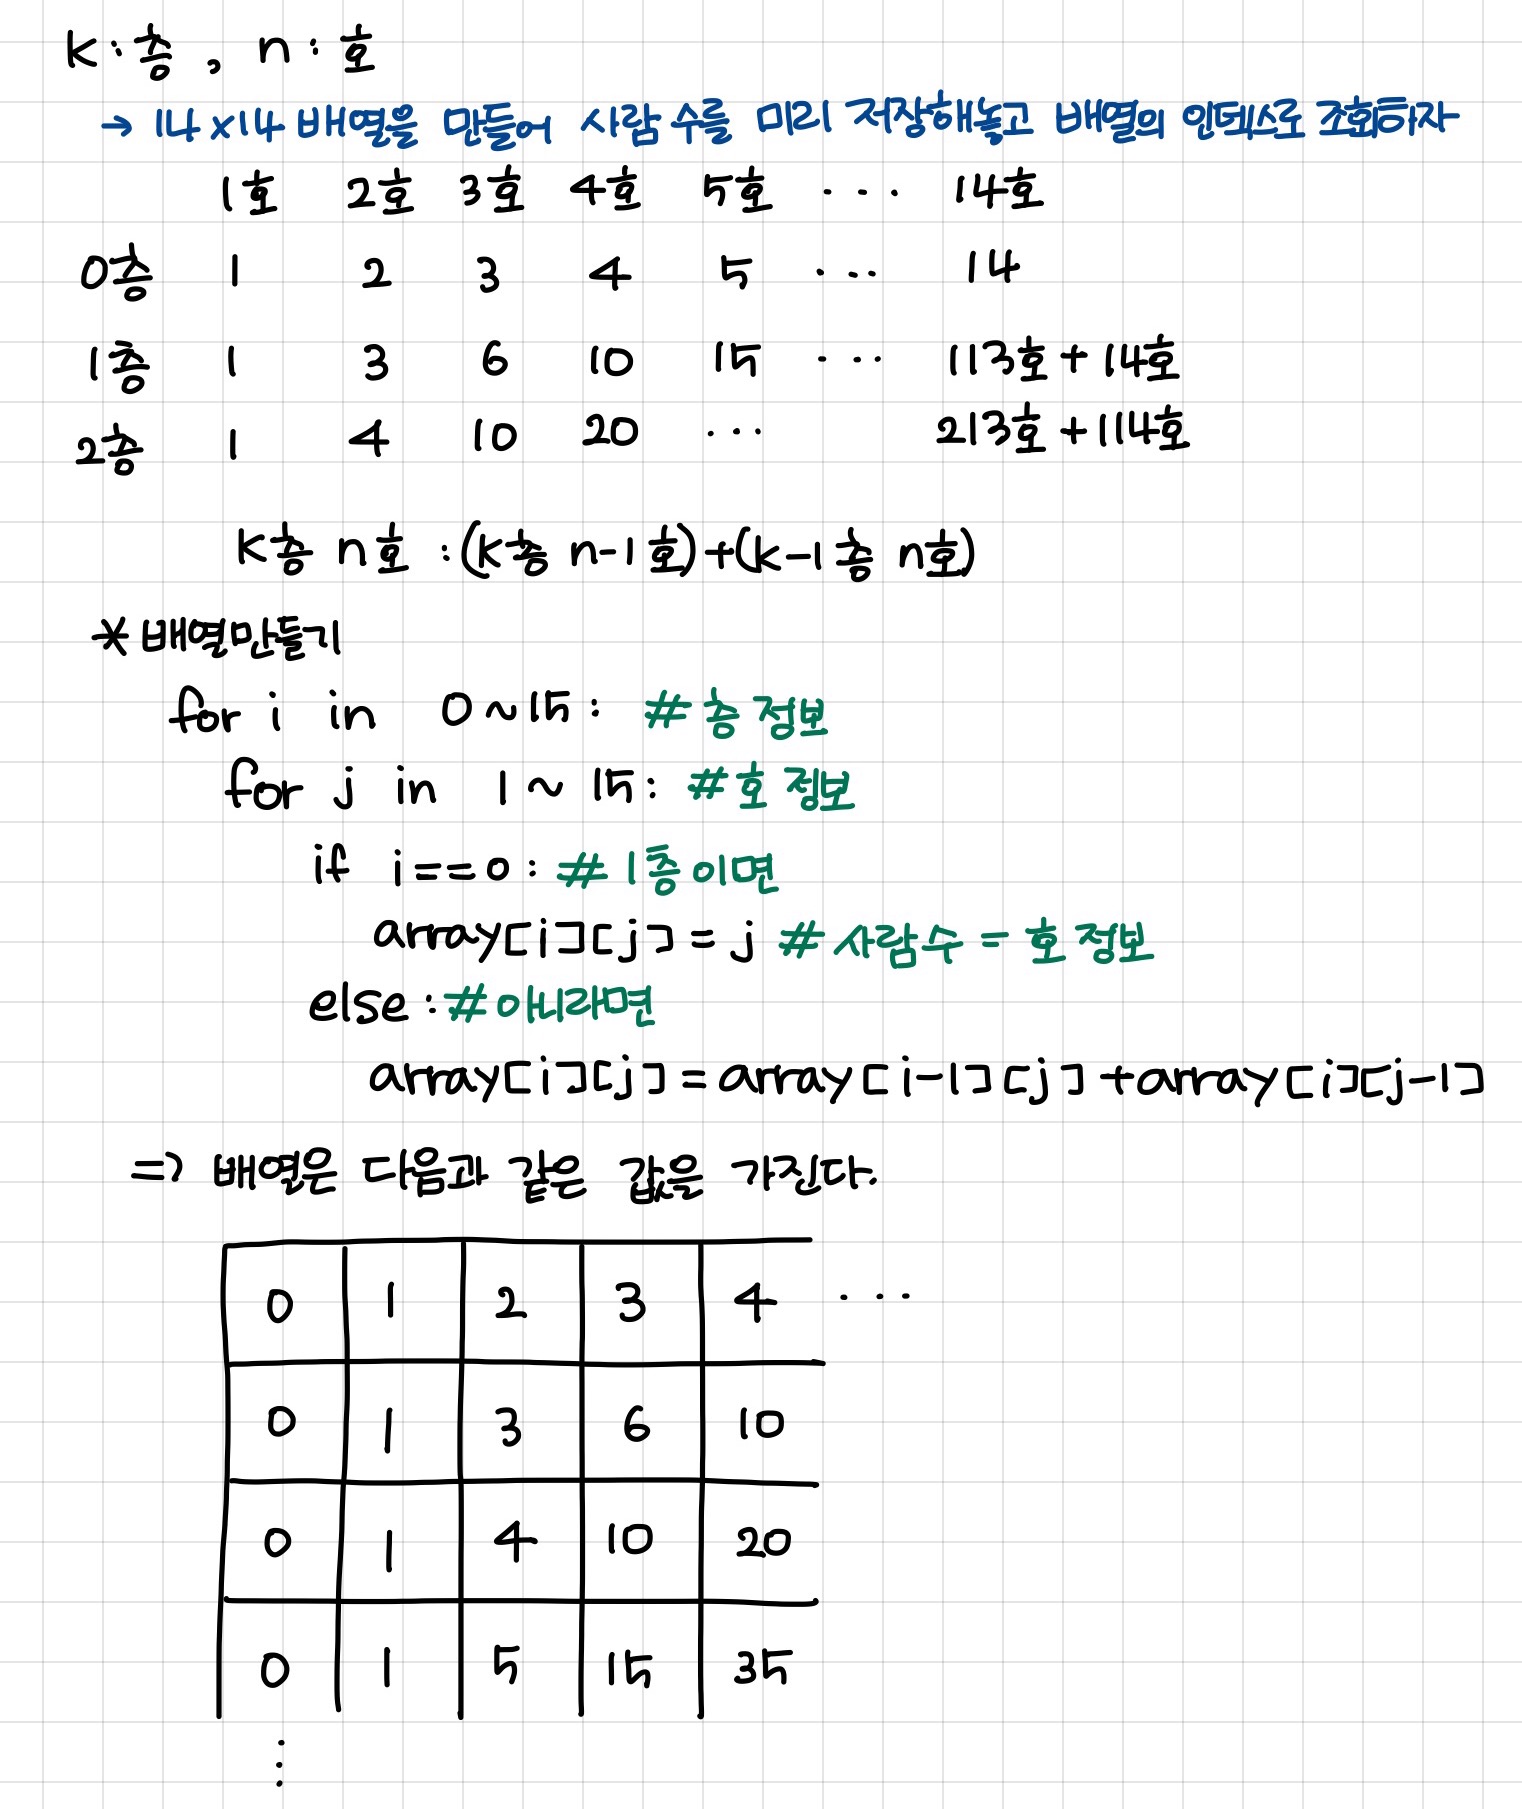 k : 층 , n : 호
→ 14x14 배열을 만들어 사람 수를 미리 저장해놓고 배열의 인덱스로 조회하자
1호 2호 3호 4호 5호 ··· 14호
0층 1 2 3 4 5 ··· 14
1층 1 3 6 10 15 ··· 113호 + 14호
2층 1 4 10 20 ··· 213호 + 114호
k층 n호 : (k층 n-1호)+(k-1층 n호)
* 배열만들기
for i in 0~15: # 층 정보
for j in 1~15: # 호 정보
if i==0: # 1층이면
array[i][j] = j # 사람수 = 호 정보
else: # 아니라면
array[i][j] = array[i-1][j] + array[i][j-1]
=> 배열은 다음과 같은 값을 가진다.
0 1 2 3 4 ···
0 1 3 6 10
0 1 4 10 20
0 1 5 15 35
⋮